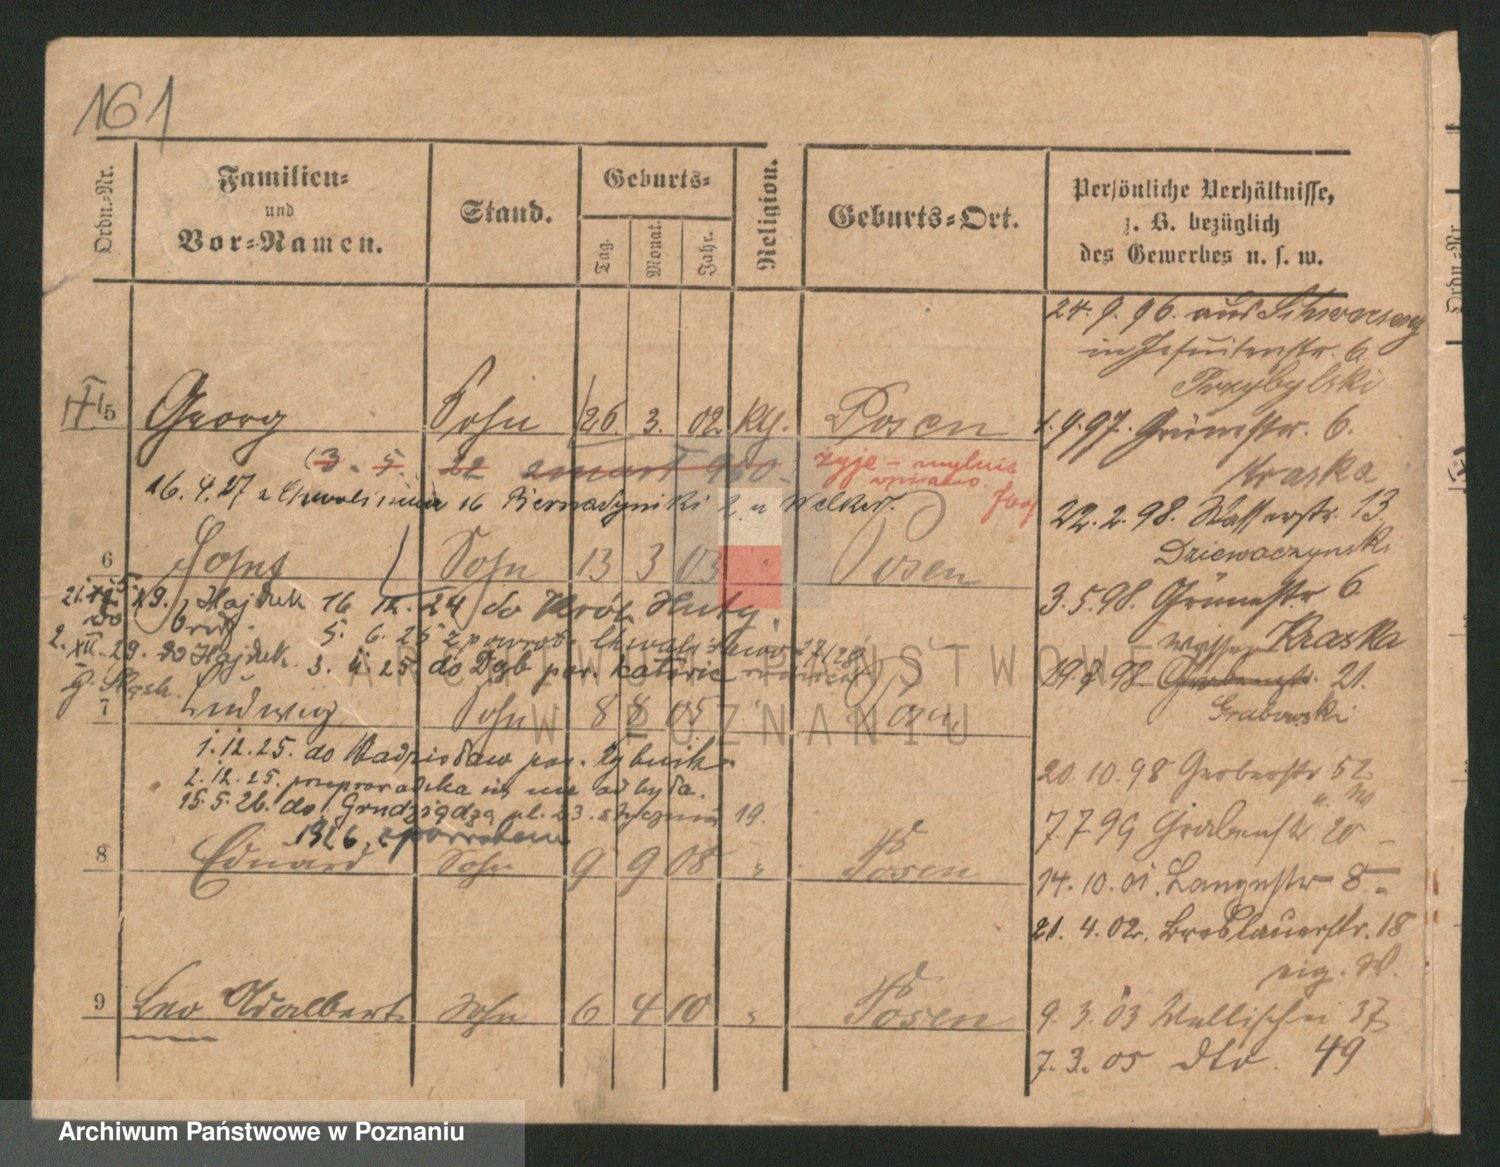 161
Ordn.-Nr.
Familien-
und
Vor-Namen.
Stand.
Geburts-
Tag.
Monat.
Jahr.
Religion.
Geburts-Ort.
Persönliche Verhältnisse,
z. B. bezüglich
des Gewerbes u. s. w.
Ordn.-Nr.
24. 9. 96. aus
in Jesuitenstr. 6
Przybylski
5 Georg Sohn 26. 3. 02. Posen
1. 9. 97. Grünestr. 6.
Kraska
3. 5. 22 900.
żyje – mylnie
wpisano.
16. 4. 27 z 16 Bernadyński 2. u
22. 2. 98. Wasserstr. 13
Dziewaczynski
6 Sohn 13 3 03 Posen
3. 5. 98. Grünestr. 6
Kraska
29. Hajduk 16 12. 24 do Król. Huty.
5. 6. 25 z powrot.
2. XII. 29. do Hajduk. 3. 4 25 do Dąb pow. Katowic
G. Śląsk.
19. 9 98 21.
Grabowski
7 Ludwig Sohn 8 8 05. Posen
1. 12. 25. do pow. Rybnik.
2. 12. 25. przeprowadzka nie odbyła.
15. 5. 26. do Grudziądza ul. 23. stycznia 19.
1926 z powrotem
20. 10. 98 Gerberstr 52
7. 7 99 Grabenstr. 20
8 Eduard Sohn 9 9 08 " Posen
14. 10. 01. Langestr 8
21. 4. 02. Breslauerstr. 18
eig. W.
9 Leo Adalbert Sohn 6 4 10 " Posen
9. 3. 03 Wallischei 37
7. 3. 05 dto. 49
ARCHIWUM PAŃSTWOWE
W POZNANIU
Archiwum Państwowe w Poznaniu